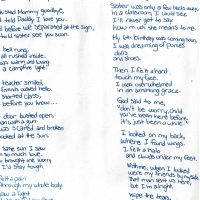 kissed Mommy goodbye,
told Daddy I love you.
before we separated at the sign,
told sister see you soon.
bell rung,
all rushed inside.
was warm and loving
a campfire light.
teacher smiled,
friends waved hello.
started class,
before you know...
door busted open,
man with a gun.
was scared and broken
looked at the sun.
the sun I saw
so much love.
brought me worry
I'd stay tough.
felt a pain
through my whole body.
saw a light
Sister was only a few blocks away,
in a classroom, I could see
I'd never get to say
how much she meant to me.
My 7th birthday was coming soon,
I was dreaming of ponies
dolls
and shoes.
Then I felt a hand
touch my face.
I was overwhelmed
in an amazing grace.
God said to me,
"don't be worry, child
you've been here before,
it's just been a while."
I looked on my back,
where I found wings.
I felt a halo
and clouds under my feet.
with me, when I looked
were my friends by my side.
That man sent us here,
but I'm alright.
Wipe the tears,